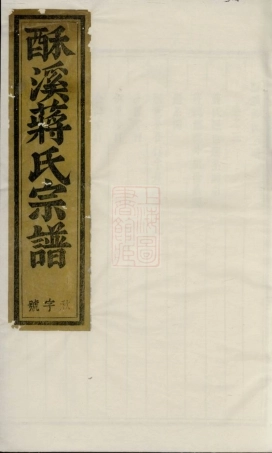 酥溪蔣氏宗譜
字號
上海圖書館藏